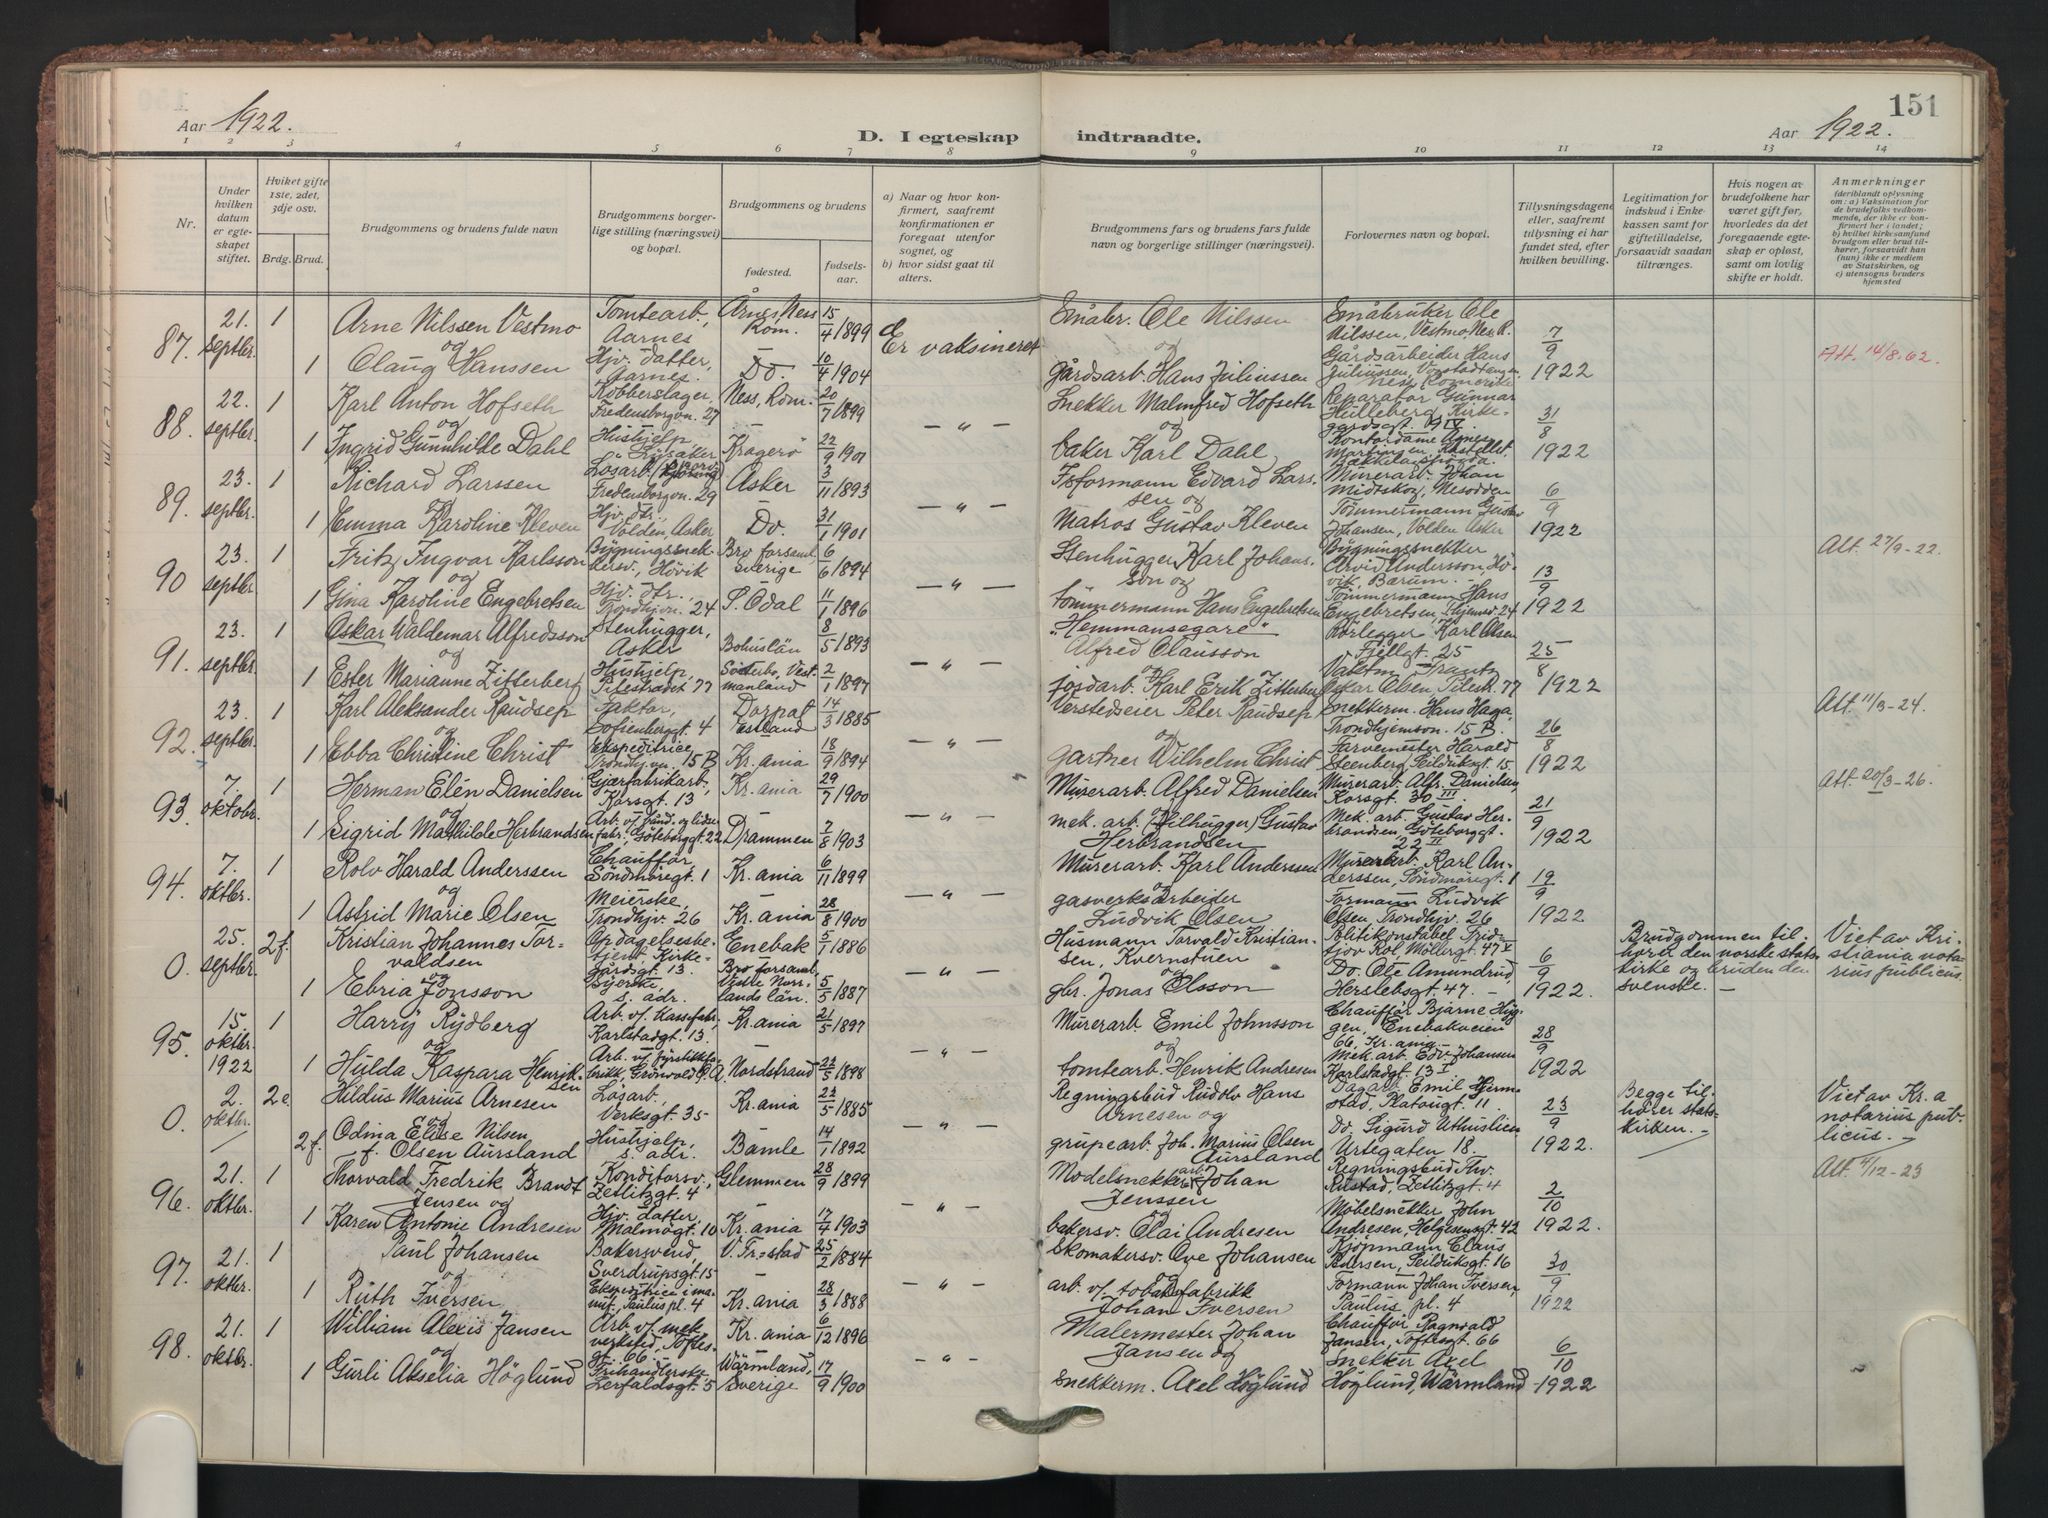 151
Aar 1922.
D. I egteskap
indtraadte.
Aar 1922.
1 2 3 4 5 6 7 8 9 10 11 12 13 14
Nr.
Under hvilken datum er egteskapet stiftet.
Hviket gifte 1ste, 2det, 3dje osv.
Brdg. Brud.
Brudgommens og brudens fulde navn
Brudgommens borgerlige stilling (næringsvei) og bopæl.
Brudgommens og brudens
fødested.
fødselsaar.
a) Naar og hvor konfirmert, saafremt konfirmationen er foregaat utenfor sognet, og
b) hvor sidst gaat til alters.
Brudgommens fars og brudens fars fulde navn og borgerlige stillinger (næringsvei).
Forlovernes navn og bopæl.
Tillysningsdagene eller, saafremt tillysning ei har fundet sted, efter hvilken bevilling.
Legitimation for indskud i Enkekassen samt for giftetilladelse, forsaavidt saadan tiltrænges.
Hvis nogen av brudefolkene har været gift før, hvorledes da det foregaaende egteskap er opløst, samt om lovlig skifte er holdt.
Anmerkninger
(deriblandt oplysning om: a) Vaksination for de brudefolks vedkommende, der ikke er konfirmert her i landet; b) hvilket kirkesamfund brudgom eller brud tilhører, forsaavidt han (hun) ikke er medlem av Statskirken, og c) utensogns bruders hjemsted
87. 21. septbr. 1 Arne Nilssen Vestmo Tomtearb., Aarnes Årnes, Ness Rom. 15/4 1899 Er vaksineret Småbr. Ole Nilssen Småbruker Ole Nilssen, Vestmo, Nes, R. 7/9 1922
og
1 Olaug Hanssen Hjv. datter, Aarnes. Do. 10/4 1904 gårdsarb. Hans Juliussen Gårdsarbeider Hans Juliussen, Att. 14/8.62.
88. 22. septbr. 1 Karl Anton Hofseth Kobberslager, Fredensborgvn. 27 Ness, Rom. 20/7 1899 — " — Snekker Malmfred Hofseth Reparatør Gunnar Hulleberg, Kirkegårdsgt. 31/8 1922
og
1 Ingrid Gunnhilde Dahl Hushjelp, Lysaker Kragerö 22/9 1901 baker Karl Dahl Kontordame Agnes
89. 23. septbr. 1 Richard Larssen Løsarb. Fredensborgvn. 29 Asker 3/11 1893 — " — Isformann Edvard Larssen og Murerarb. Johan Midtskog, Nesodden 6/9 1922
1 Emma Karoline Kleven Hjv. dtr. Volden, Asker Do. 31/1 1901 Matros Gustav Kleven Tömmermann Gustav Johansen, Volden Asker
90 23. septbr. 1 Fritz Ingvar Karlsson Bygningssnekkersv., Hövik Bro forsaml. Sverige 6/6 1894 — " — Stenhugger Karl Johansson og Bygningssnekker Arvid Andersson, Hövik, Bærum. 13/9 1922 Att. 27/9-22.
og
1 Gina Karoline Engebretsen Hjv. dtr., Trondhjvn. 24 S. Odal 11/1 1896 tömmermann Hans Engebretsen Tömmermann Hans Engebretsen,
91. 23. septbr. 1 Askar Waldemar Alfredsson Stenhugger, Asker Bohuslän 8/5 1893 — " — "Hemmansegare" Alfred Olausson Rörlegger Karl Olsen Fjellgt. 25 25/8 1922
og
1 Ester Marianne Zitterberg Hushjelp, Pilestrædet 77 Vestmanland 2/1 1897 jordarb. Karl Erik Zitterberg Oskar Olsen, Pilestr. 77
92. 23. septbr. 1 Karl Aleksander Raudsep Faktor, Sofienberggt. 4 Dorpat Estland 14/3 1885 — " — Verstedseier Peter Raudsep Snekkerm. Hans Haga, Trondhjemsvn. 15 B. 26/8 1922 Att. 11/3-24.
og
1 Ebba Christine Christ Ekspeditrice Trondhj.vn. 15 B Kr.ania 18/9 1894 gartner Wilhelm Christ Farvemester Harald Steenberg, Seilduksgt. 15
93. 7. oktobr. 1 Herman Elén Danielsen Gjærfabrikarb., Korsgt. 13 Kr.ania 29/7 1900 — " — Murerarb. Alfred Danielsen Murerarb. Alfr. Danielsen Korsgt. 30 III 21/9 1922 Att. 20/3-26.
og
1 Sigrid Mathilde Herbrandsen Göteborggt. 22 Drammen 7/8 1903 mek. arb. (Filhugger) Gustav Herbrandsen Mek. arb. Gustav Herbrandsen, Göteborggt. 22 II
94. 7. oktbr. 1 Rolv Harald Anderssen Chauffør Söndmöregt. 1 Kr.ania 6/11 1899 — " — Murerarb. Karl Anderssen Murerarb. Karl Anderssen, Söndmöregt. 1 19/9 1922
og
1 Astrid Marie Olsen Meierske, Trondhjv. 26 Kr.ania 28/8 1900 gasverksarbeider Ludvik Olsen Formann Ludvik Olsen, Trondhjv. 26
0. 25. septbr. 2 f. Kristian Johannes Torvaldsen Opdagelsesbetjent, Kirkegårdsgt. 13. Enebak 5/1 1886 — " — Husmann Torvald Kristiansen, Kvernstuen Politikonstabel Fridtjov Rol, Möllergt. 47 V 6/9 1922. Brudgommen tilhörer den norske statskirke og bruden den svenske. — Viet av Kristiania notarius publicus.
og
1 Ebria Jonsson Syerske, s. adr. 5/5 1887 gbr. Jonas Olsson Do. Ole Amundrud, Herslebsgt 47. —
95. 15. oktbr. 1922 1 Harry Rydberg Arb. v/ kassefabr., Karlstadgt. 13. Kr.ania 21/5 1897 — " — Murerarb. Emil Johnsson Chauffør Bjarne Hyggen, Enebakveien 66, Kr.ania 28/9 1922
og
1 Hulda Kaspara Henriksen Arb. v/ fyrstikkfabrikk, Grönvold, Ö. A. Nordstrand 22/5 1898 tomtearb. Henrik Andresen Mek. arb. Edv. Johansen Karlstadgt. 13 I
0. 2. oktbr. 2 e. Hildus Marius Arnesen Løsarb., Verksgt. 35 Kr.ania 22/5 1885 — " — Regningsbud Rudolv Hans Arnesen og Dagarb. Emil Hjermstad, Platougt. 11 23/9 1922. Begge tilhører statskirken. — Viet av Kr.a notarius publicus. —
og
2 f. Odina Elise Nilsen f. Olsen Aursland Hushjelp, s. adr. Bamle 14/1 1892 grupearb. Joh. Marius Olsen Aursland Do. Sigurd Urtegaten 18. —
96. 21. oktbr. 1 Thorvald Fredrik Brandt Jensen og Konditorsv., Zetlitzgt. 4 Glemmen 28/9 1899 — " — Modelsnekkerarb. Johan Jenssen Regningsbud Thv. Rustad, Zetlitzgt. 4 2/10 1922. Att. 4/12-23
1 Karen Antonie Andresen Hjv. datter, Malmögt. 10 Kr.ania 17/4 1903 bakersv. Olai Andresen Möbelsnekker John Andresen, Helgesensgt. 42
97. 21. oktbr. 1 Paul Johansen Bakersvend, Sverdrupsgt. 15 V. Fr=stad 25/2 1884 — " — Skomakersv. Ove Johansen Kjöpmann Claus Pedersen, Seilduksgt. 16 30/9 1922
og
1 Ruth Iversen Ekspeditrice i manuf., Paulus pl. 4 Kr.ania 28/3 1888 arb. v/ tobakkfabrikk Johan Iversen Formann Johan Iversen Paulus pl. 4
98. 21. oktbr. 1 William Alexis Jansen Arb. v/ mek verksted, Toftesgt. 66. Kr.ania 6/12 1896 — " — Malermester Johan Jansen og Chauffør Ragnvald Jansen, Toftesgt. 66 6/10 1922
og
1 Gurli Akselia Höglund Frihandlerske Zerfaldsgt. 5 Wärmland, Sverige 17/9 1900 Snekkerm. Axel Höglund Snekker Axel Höglund, Wärmland